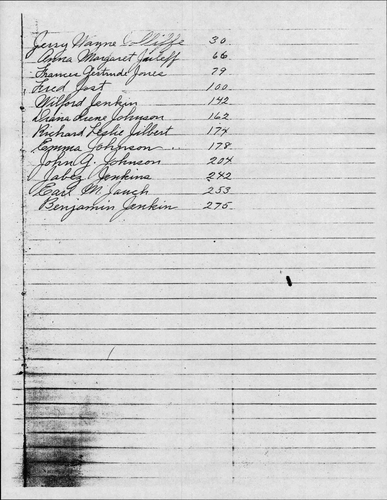 Jerry Wayne Jolliffe 30
Anna Margaret 66
Frances Gertrude Jones 79
Fred Jost 100
Wilford Jenkin 142
Diana Irene Johnson 162
Richard Leslie Jilbert 174
Emma Johnson 178
John G. Johnson 204
Jabez Jenkins 242
Earl M. Jauch 253
Benjamin Jenkin 275